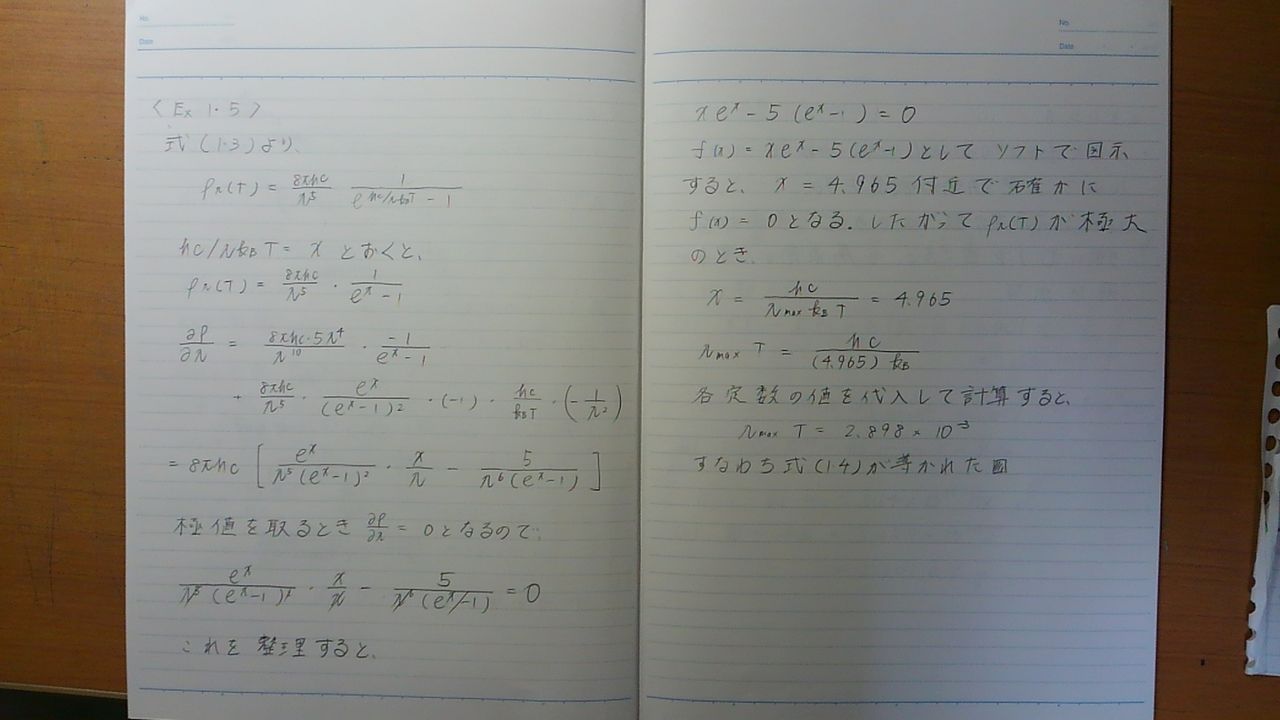 No.
Date
〈Ex 1·5〉
式(1·3)より、
ρλ(T) = 8πhc/λ⁵ 1/(e^(hc/λk_BT) - 1)
hc/λk_B T = x とおくと、
ρλ(T) = 8πhc/λ⁵ · 1/(e^x - 1)
∂ρ/∂λ = 8πhc·5λ⁴/λ¹⁰ · -1/(e^x - 1)
+ 8πhc/λ⁵ · e^x/(e^x - 1)² · (-1) · hc/k_BT · (-1/λ²)
= 8πhc [ e^x/(λ⁵(e^x - 1)²) · x/λ - 5/(λ⁶(e^x - 1)) ]
極値を取るとき ∂ρ/∂λ = 0となるので、
e^x/(λ⁵(e^x - 1)²) · x/λ - 5/(λ⁶(e^x - 1)) = 0
これを整理すると、
No.
Date
xe^x - 5(e^x - 1) = 0
f(x) = xe^x - 5(e^x - 1)として ソフトで図示
すると、 x = 4.965 付近で確かに
f(x) = 0となる。したがって ρλ(T)が極大
のとき、
x = hc/(λmax k_B T) = 4.965
λmax T = hc/((4.965) k_B)
各定数の値を代入して計算すると、
λmax T = 2.898 × 10⁻³
すなわち式(1·4)が導かれた